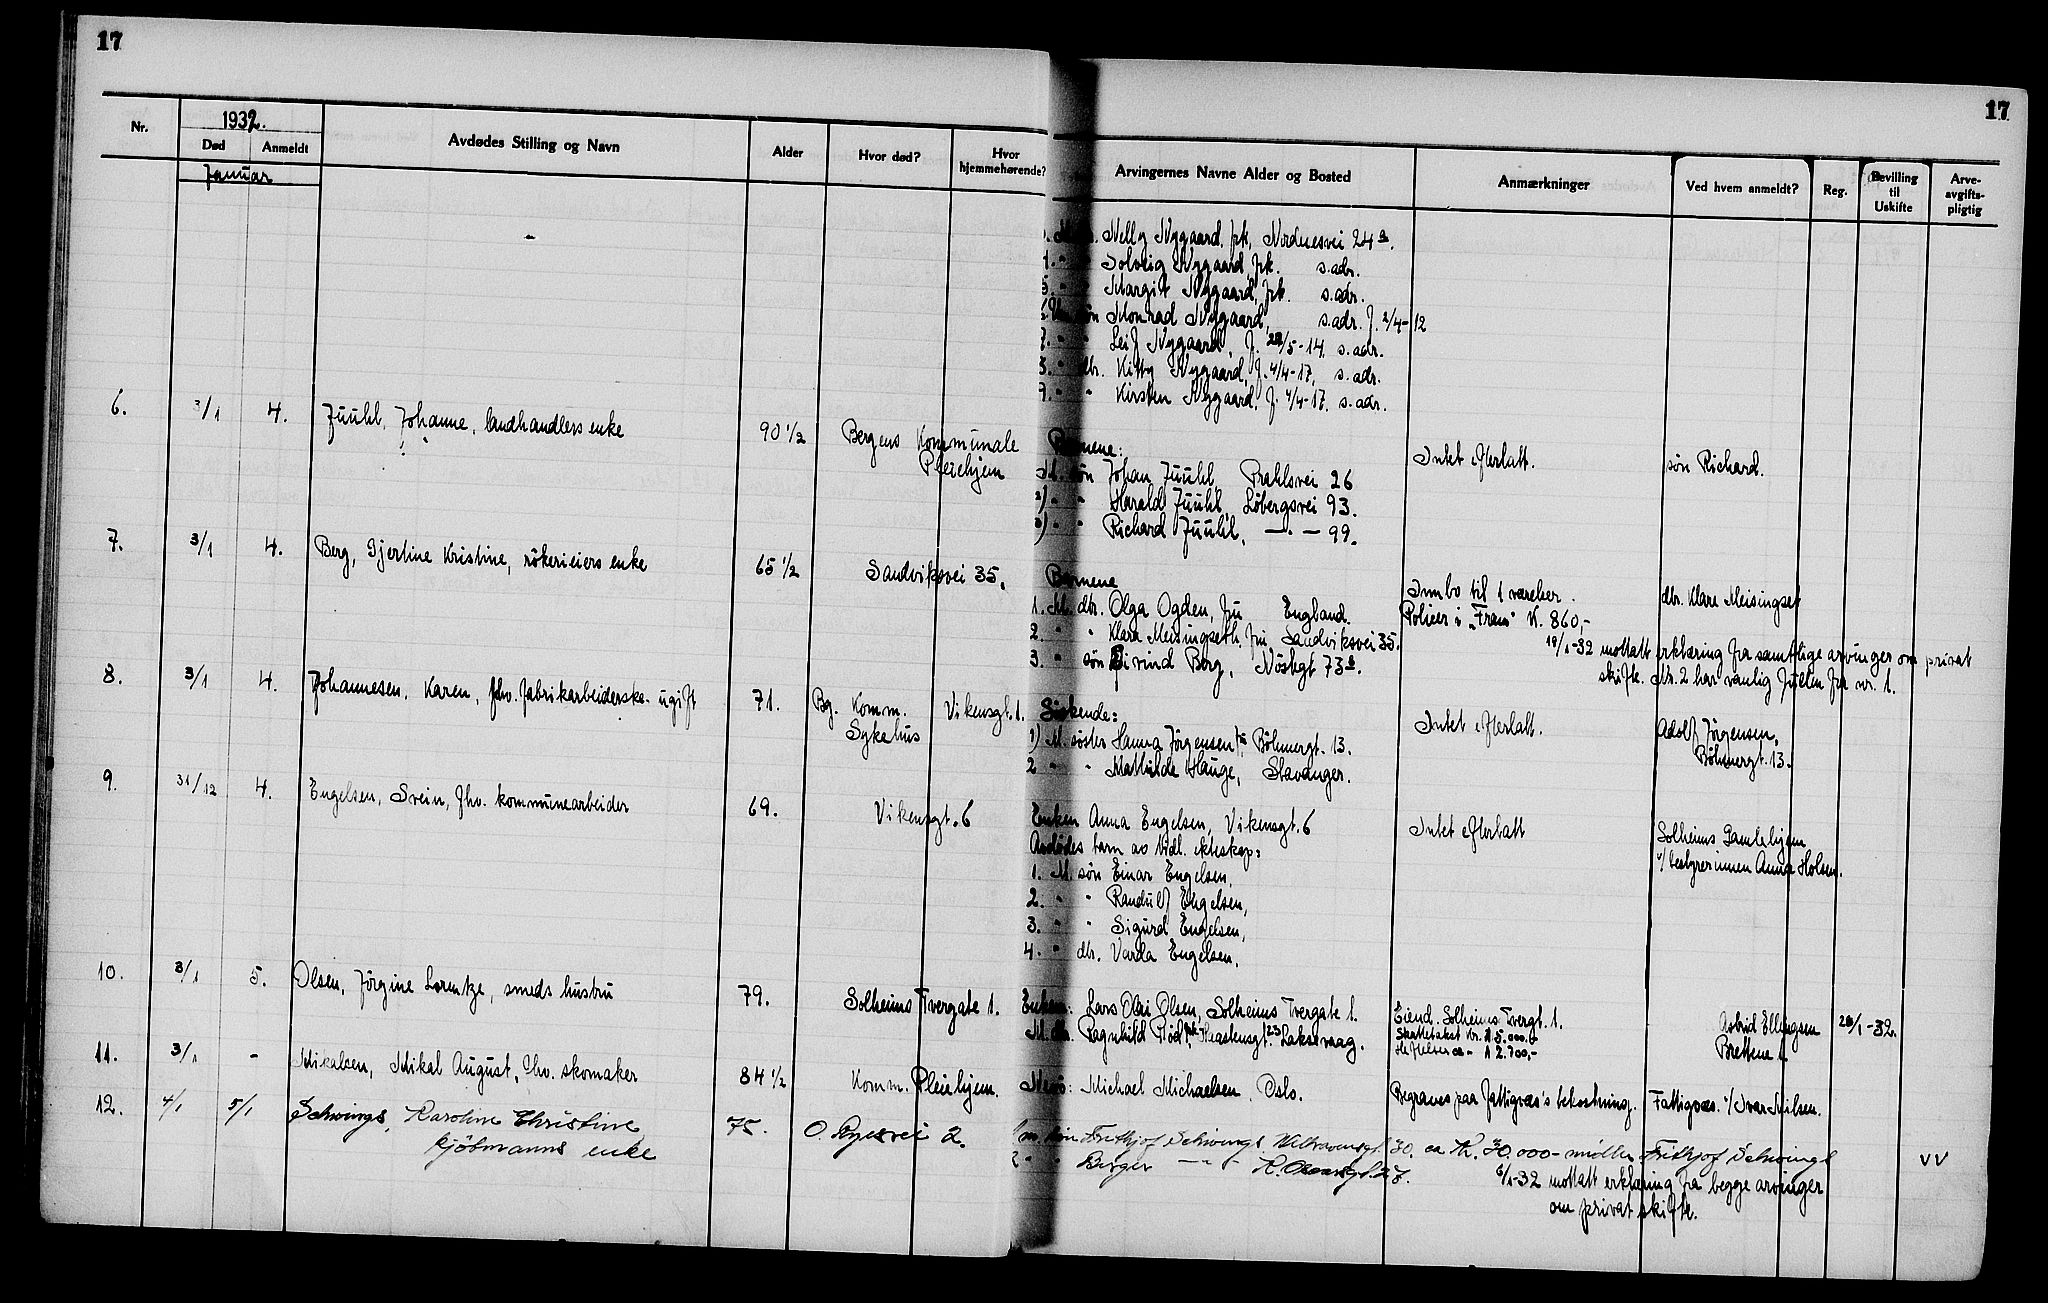 17
17
Nr.
1932.
Død
Anmeldt
Januar
Avdødes Stilling og Navn
Alder
Hvor død?
Hvor
hjemmehørende?
Arvingernes Navne Alder og Bosted
Anmærkninger
Ved hvem anmeldt?
Reg.
Bevilling
til
Uskifte
Arve-
avgifts-
pligtig
Nelly Nygaard, frk, Nordnesvei 24 a.
4. " " Solveig Nygaard, frk. s. adr.
5. " " Margit Nygaard, frk. s. adr.
søn Monrad Nygaard, s. adr. f. 2/4-12
7. " " Leif Nygaard, f. 28/5-14. s. adr.
8. " dtr. Kitty Nygaard, f. 4/4-17, s. adr.
9. " " Kirsten Nygaard, f. 4/4-17. s. adr.
6. 3/1 4. Juuhl, Johanne, landhandlers enke 90 1/2 Bergens Kommunale
Pleiehjem
Barnene:
M. søn Johan Juuhl, Prahlsvei 26
2) " " Harald Juuhl, Løbergsvei 93.
3) " " Richard Juuhl, — " — 99.
Intet efterlatt.
søn Richard.
7. 3/1 4. Berg, Gjertine Kristine, røkerieiers enke 65 1/2 Sandviksvei 35.
Barnene
1. M. dtr. Olga Ogden, fru England.
2. " " Klara Meisingseth, fru Sandviksvei 35.
3. " søn Eivind Berg, Nøstegt 73 b.
Innbo til 1 værelser.
Policer i "Fram" K. 860,-
dtr. Klara Meisingset
18/1-32 mottatt erklæring fra samtlige arvinger om privat
skifte. Nr. 2 har vanlig fullm fra nr. 1.
8. 3/1 4. Johannesen, Karen, fhv. fabrikarbeiderske - ugift 71. Bg. Komm.
Sykehus
Vikensgt. 1.
Søskende:
1) M. søster Hanna Jørgensen, fru Bøhmergt. 13.
2 " " Mathilde Hauge, Stavanger.
Intet efterlatt.
Adolf Jørgensen,
Bøhmergt. 13.
9. 31/12 4. Engelsen, Svein, fhv. kommunearbeider 69. Vikensgt. 6
Enken Anna Engelsen, Vikensgt. 6
Avdødes barn av tidl. ekteskap:
1. M. søn Einar Engelsen,
2. " " Randulf Engelsen,
3. " " Sigurd Engelsen,
4. " dtr. Varda Engelsen.
Intet efterlatt
Solheims Gamlehjem
v/ bestyrerinnen Anna Holsen.
10. 3/1 5. Olsen, Jørgine Lorentze, smeds hustru 79. Solheims Tvergate 1.
Enkem: Lars Olai Olsen, Solheims Tvergate 1.
M. dtr. Ragnhild 23 Laksevaag.
Eiend. Solheims Tvergt. 1.
Skattetakst Kr. 15.000,-
Heftelser ca - 12.700,-
Astrid Ellingsen
28/1-32.
11. 3/1 - Mikalsen, Mikal August, fhv. skomaker 84 1/2 Komm. Pleiehjem.
Nevø: Michael Michaelsen, Oslo.
Begraves paa Fattigvæs's bekostning.
Fattigvæs. v/ Ivar Nilsen.
12. 4/1 5/1 Schwings, Karoline Christine
kjøbmanns enke
75. O. Ryesvei 2.
1 m. søn Frithjof Schwings, 30.
2 " " Birger — " —
ca Kr. 30.000- midler
Frithjof Schwings
6/1-32 mottatt erklæring fra begge arvinger
om privat skifte.
VV